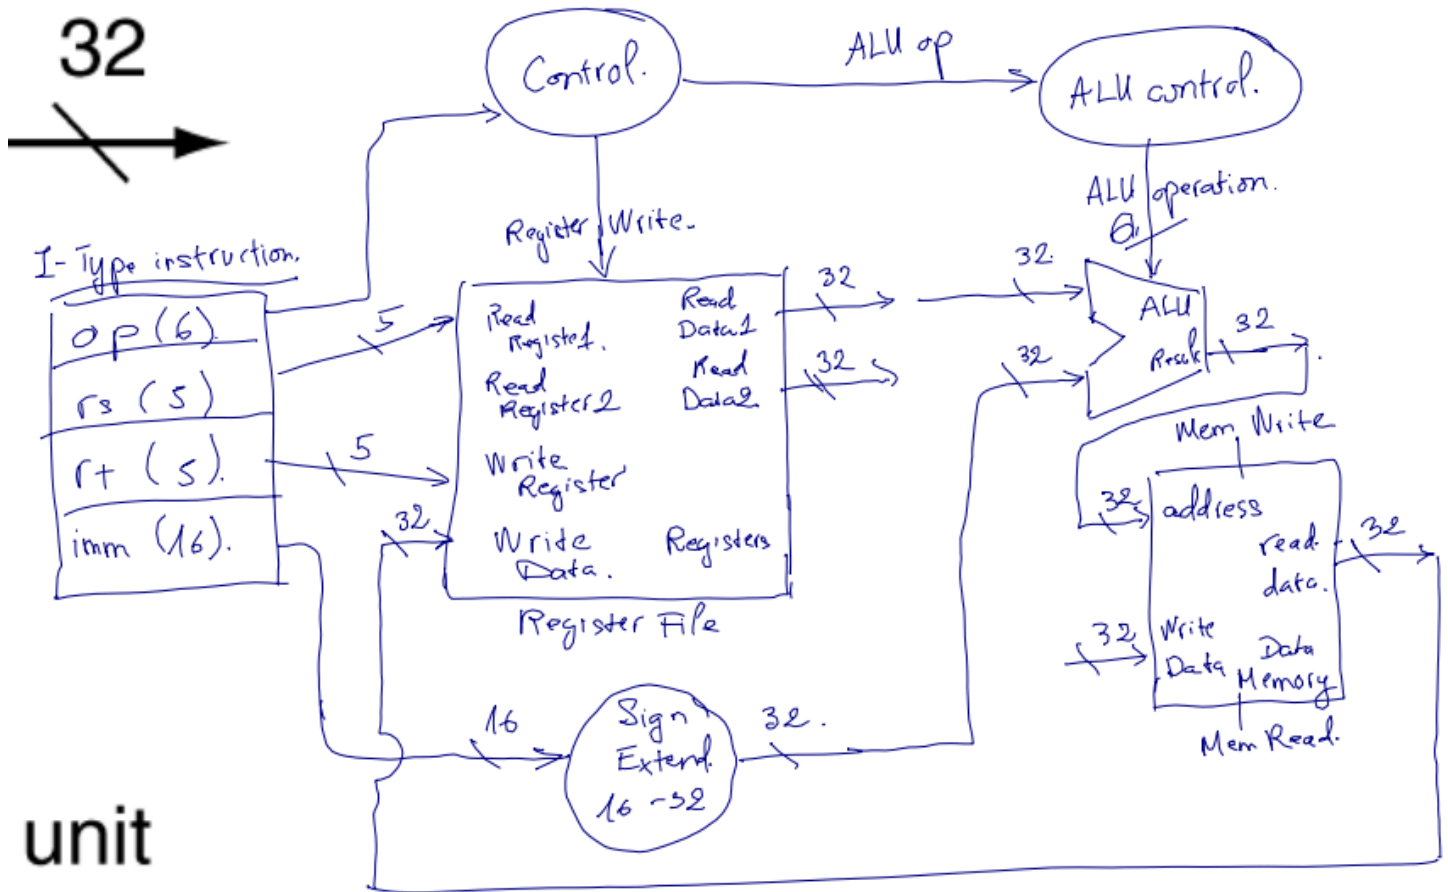 32
Control.
ALU op
ALU control.
ALU operation.
6
Register Write.
I-Type instruction.
op (6)
rs (5)
rt (5).
imm (16).
5
5
32
Read
Registe1.
Read
Register2
Write
Register
Write
Data.
Read
Data1
Read
Data2
Registers
Register File
32
32
32.
32
ALU
Result
32
Mem Write
32
address
read
data.
32
32
Write
Data
Data
Memory
Mem Read.
16
Sign
Extend.
16-32
32.
unit